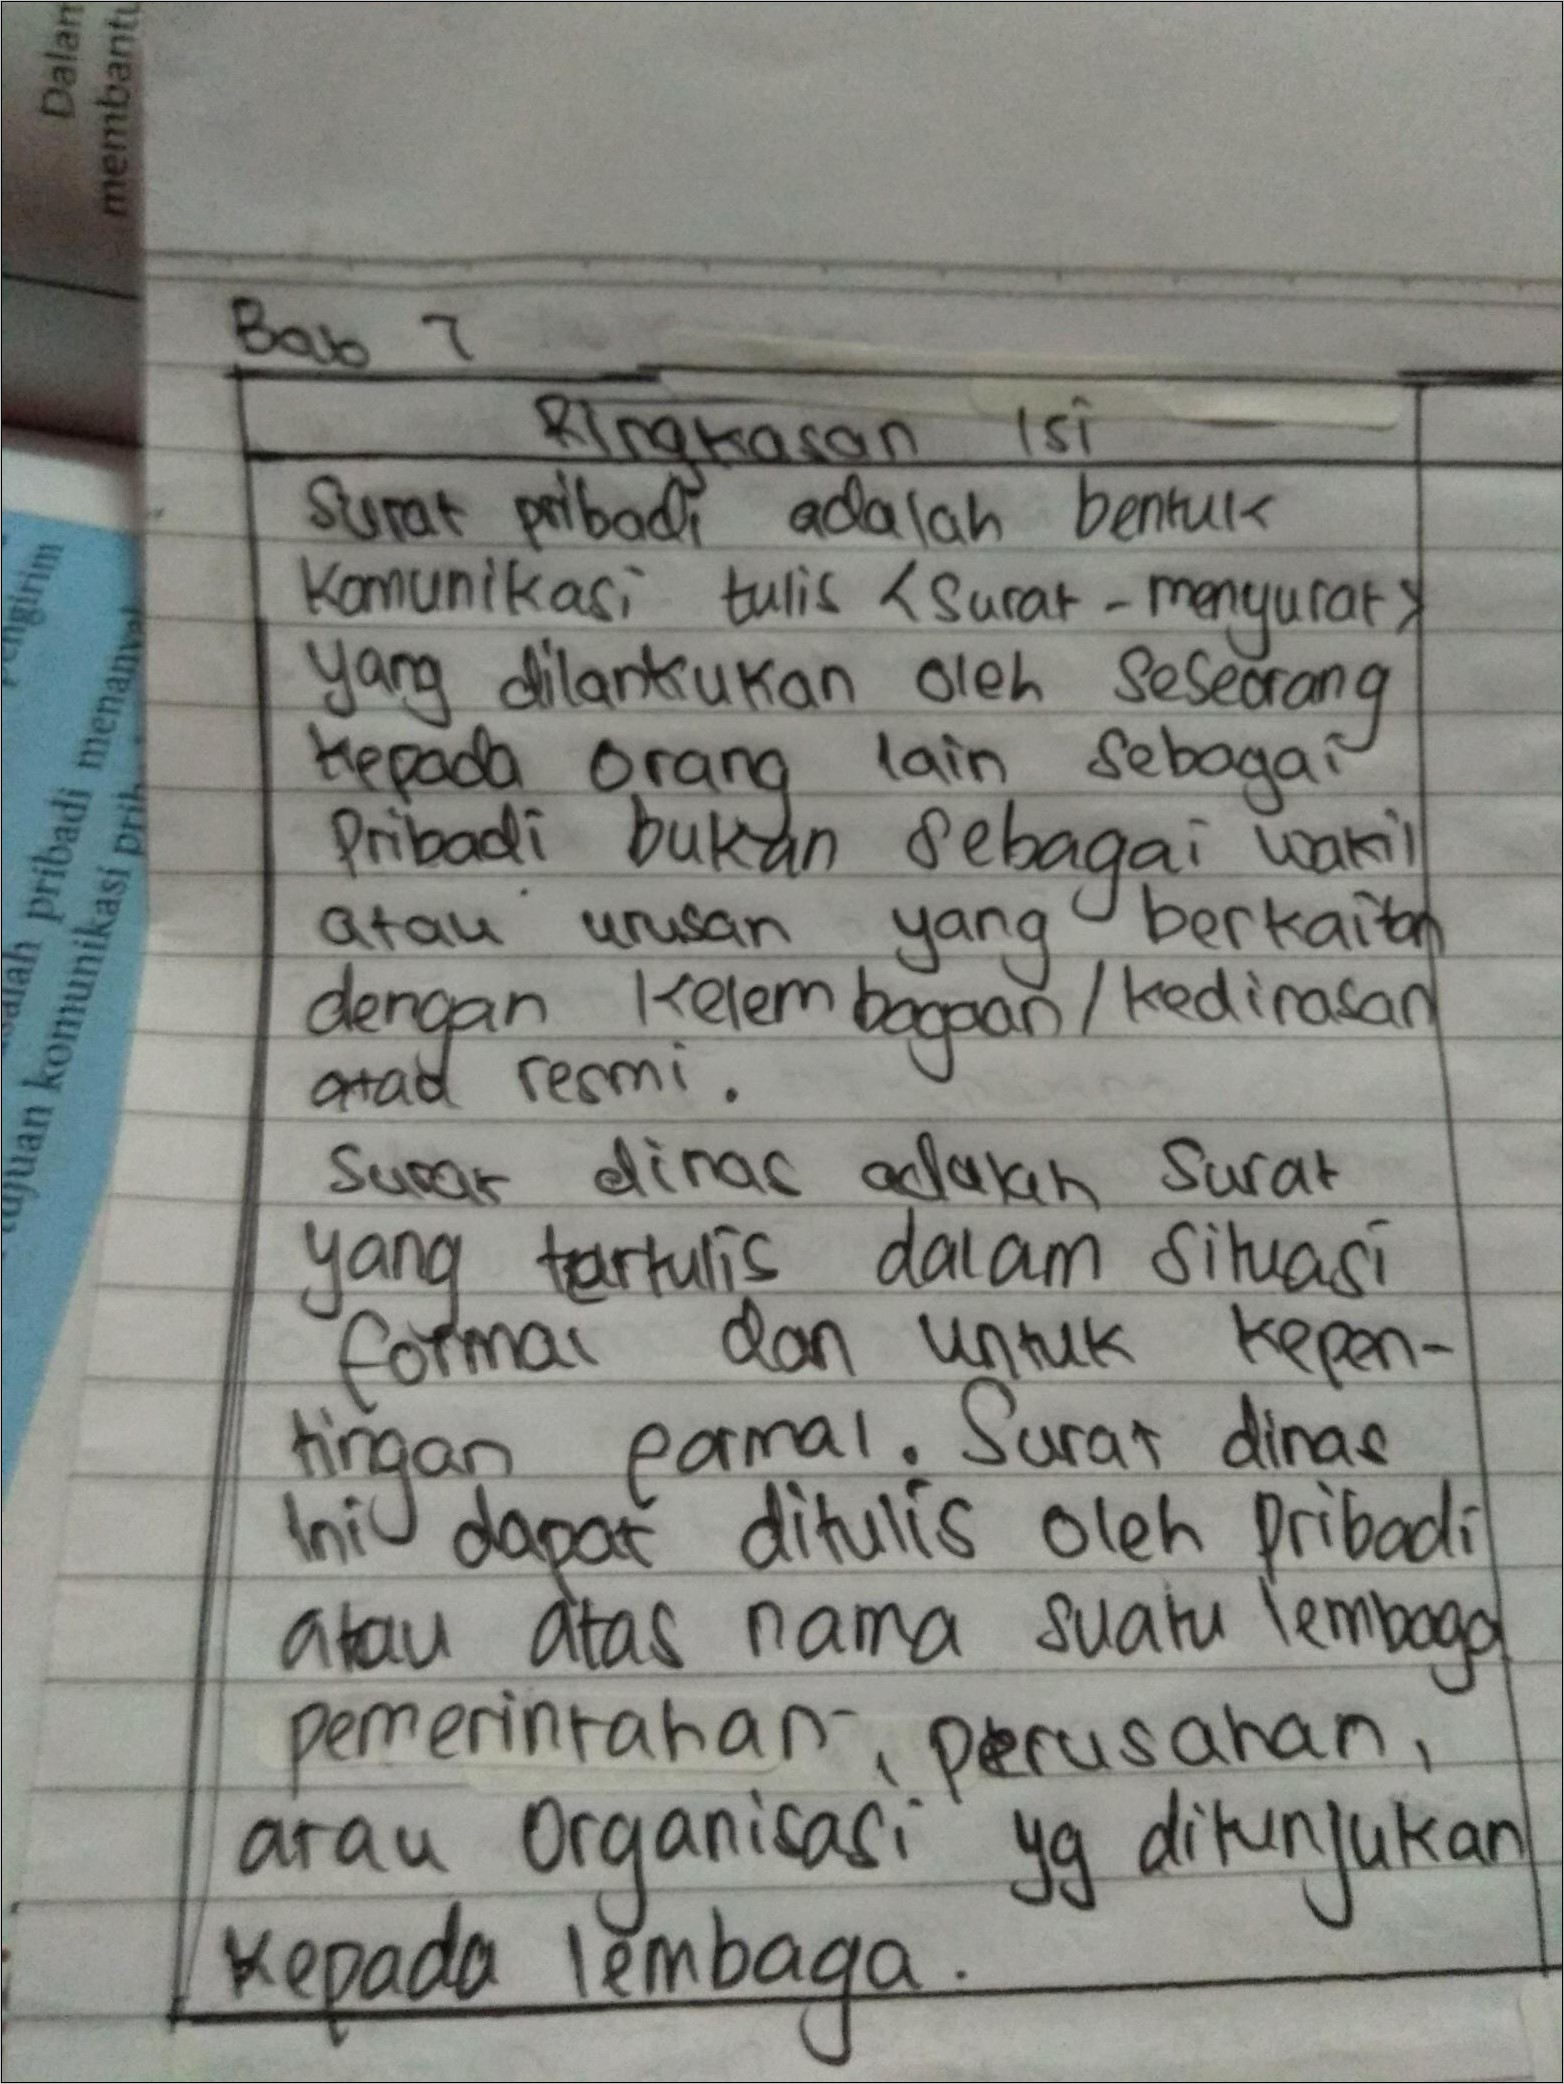 Dalam
membantu
engirim
salah pribadi menanyakan
tujuan komunikasi prib
Bab 7
Ringkasan Isi
Surat pribadi adalah bentuk
Komunikasi tulis <Surat-menyurat>
yang dilankukan oleh Seseorang
kepada orang lain sebagai
Pribadi bukan sebagai wakil
atau urusan yang berkaitan
dengan kelembagaan/kedinasan
atad resmi.
Surat dinas adalah Surat
yang tertulis dalam situasi
formal dan untuk kepen-
tingan formal. Surat dinas
Ini dapat ditulis oleh pribadi
atau atas nama suatu lembaga
pemerintahan, perusahan,
atau organisasi yg ditunjukan
kepada lembaga.